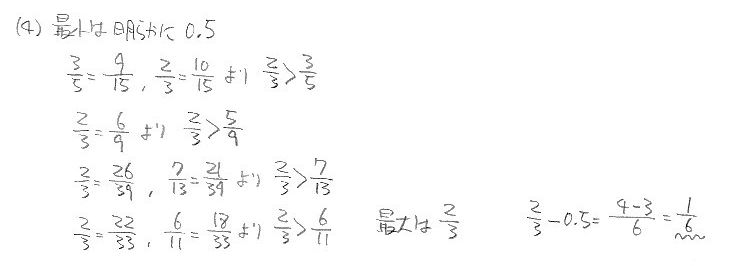 (4) 最小は明らかに 0.5
3/5 = 9/15 , 2/3 = 10/15 より 2/3 > 3/5
2/3 = 6/9 より 2/3 > 5/9
2/3 = 26/39 , 7/13 = 21/39 より 2/3 > 7/13
2/3 = 22/33 , 6/11 = 18/33 より 2/3 > 6/11 最大は 2/3 2/3 - 0.5 = 4-3/6 = 1/6